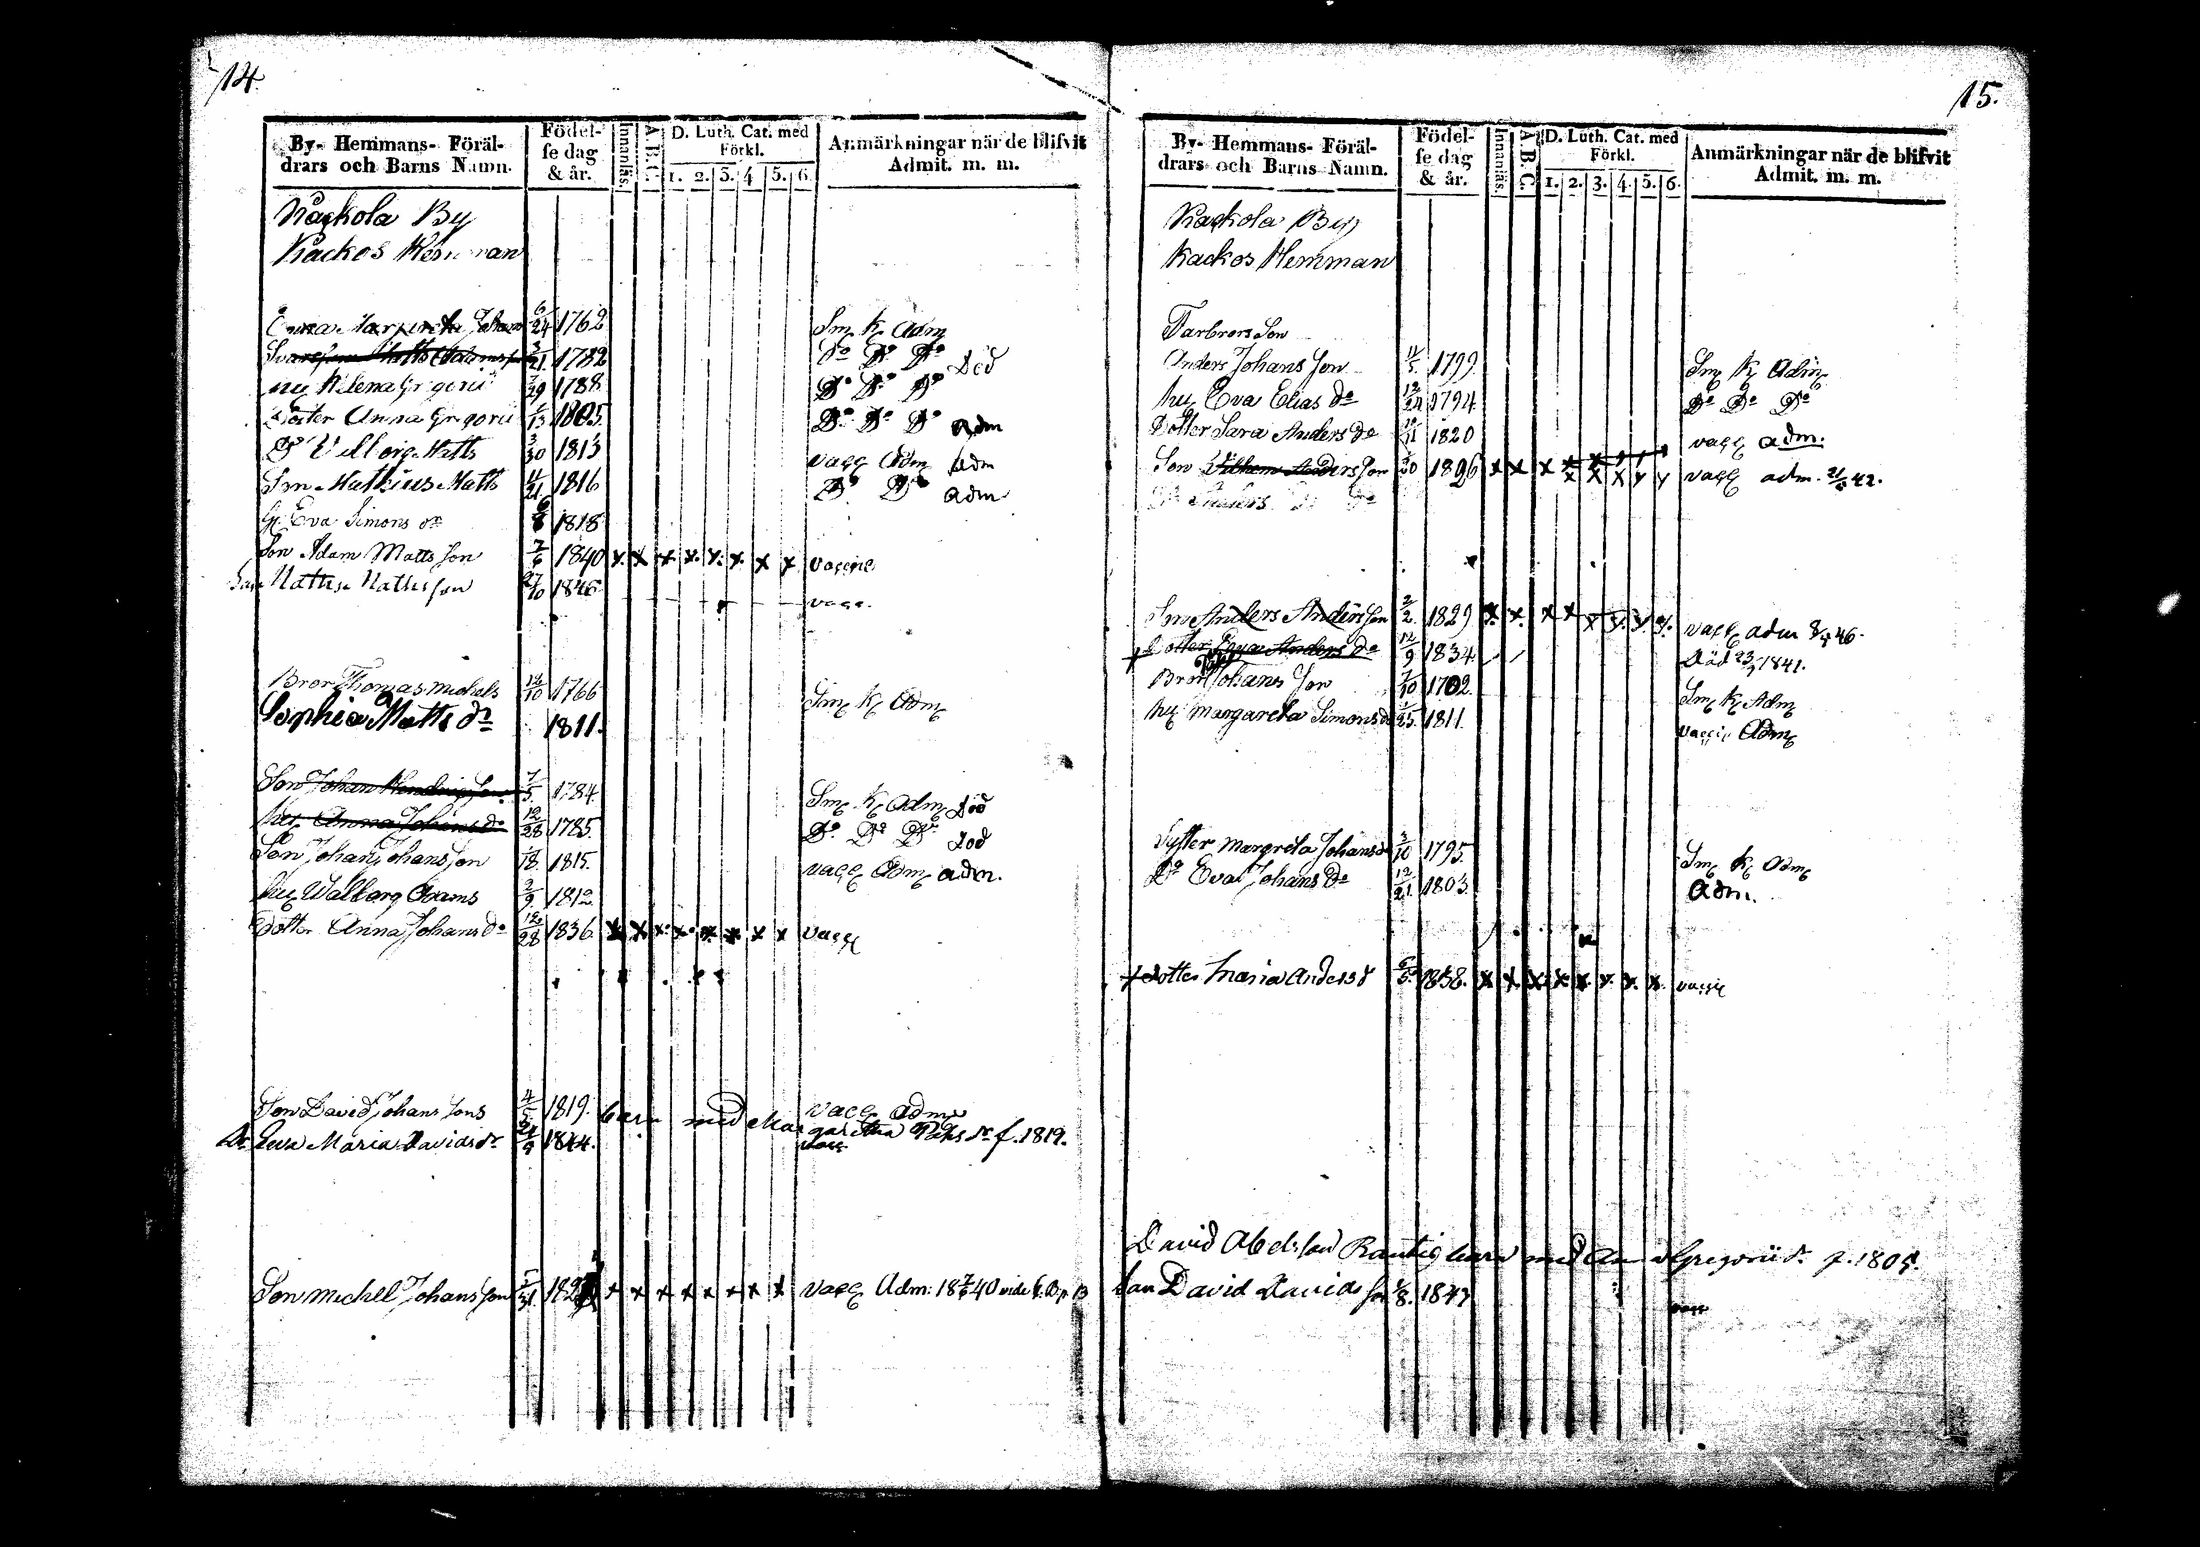 14.
By- Hemmans- Föräl-
drars och Barns Namn.
Födel-
se dag
& år.
Innanläs.
A.B.C.
D. Luth. Cat. med
Förkl.
1. 2. 3. 4 5. 6.
Anmärkningar när de blifvit
Admit. m. m.
Kackola By
Kackos Hemman
Enka Margreta Johans 6/24 1762 Sm K Adm
Matts 3/21 1782 Do Do Do Död
Hu Helena Grigorii 7/29 1788 Do Do Do
Anna Grigorii 1/13 1805. Do Do Do Adm
Do Vilborg Matts 3/30 1813 vacc Adm Adm
Son Mathius Matts 11/21 1816 Do Do Adm
Eva Simons dr 1818
Son Adam Matts Son 7/6 1840 x x x x x x x x vaccine
Son Matths Mathsson 27/10 1846 vacc.
Bror Thomas Michels 12/10 1766 Sm K Adm
Sophia Matts dr 1811.
Son Johan Hendrichson 7/5. 1784. Sm K Adm Död
Hu Anna Johans do 12/28 1785. Do Do Do Död
Son Johan Johans Son 1/18. 1815. vacc Adm adm.
Hu Walborg Adams 2/9 1812
Dotter Anna Johans do 12/28 1836 x x x x x x x x vacc
Son David Johans Sons 4/5. 1819. vacc Adm
barn med Margaretha dr f. 1819.
Dr Eva Maria Davidsdr 1844. vacc
Son Michel Johans Son /31. x x x x x x x x vacc Adm: 18 7/6 40 vide
15.
By- Hemmans- Föräl-
drars och Barns Namn.
Födel-
se dag
& år.
Innanläs.
A.B.C.
D. Luth. Cat. med
Förkl.
1. 2. 3. 4. 5. 6.
Anmärkningar när de blifvit
Admit. m. m.
Kackola By
Kackos Hemman
Farbrors Son
Anders Johans Son 11/5 1799 Sm K Adm
Hu Eva Elias do 12/24 1794 Do Do Do
Dotter Sara Anders do /11 1820 vacc adm.
Son Vilhem Anders Son /20 1826 x x x x x x x x vacc adm. 42.
Son Anders Anders Son 2/2. 1829 x x x x x x x x vacc adm 46.
+ Dotter Eva Anders do 12/9 1834 Död 1841.
Bror Johans Son 7/10 1702 Sm K Adm
Hu Margareta Simons d 1/25. 1811. vaccin Adm
Syster Margreta Johans d 3/10 1795. Sm K Adm
Do Eva Johans do 12/21. 1803. Adm.
+ Dotter Maria Anders d /5. 1838. x x x x x x x x vaccin
David Abelsson barn med Grigorii dr f. 1805.
Son David Davids son /8. 1847 vacc